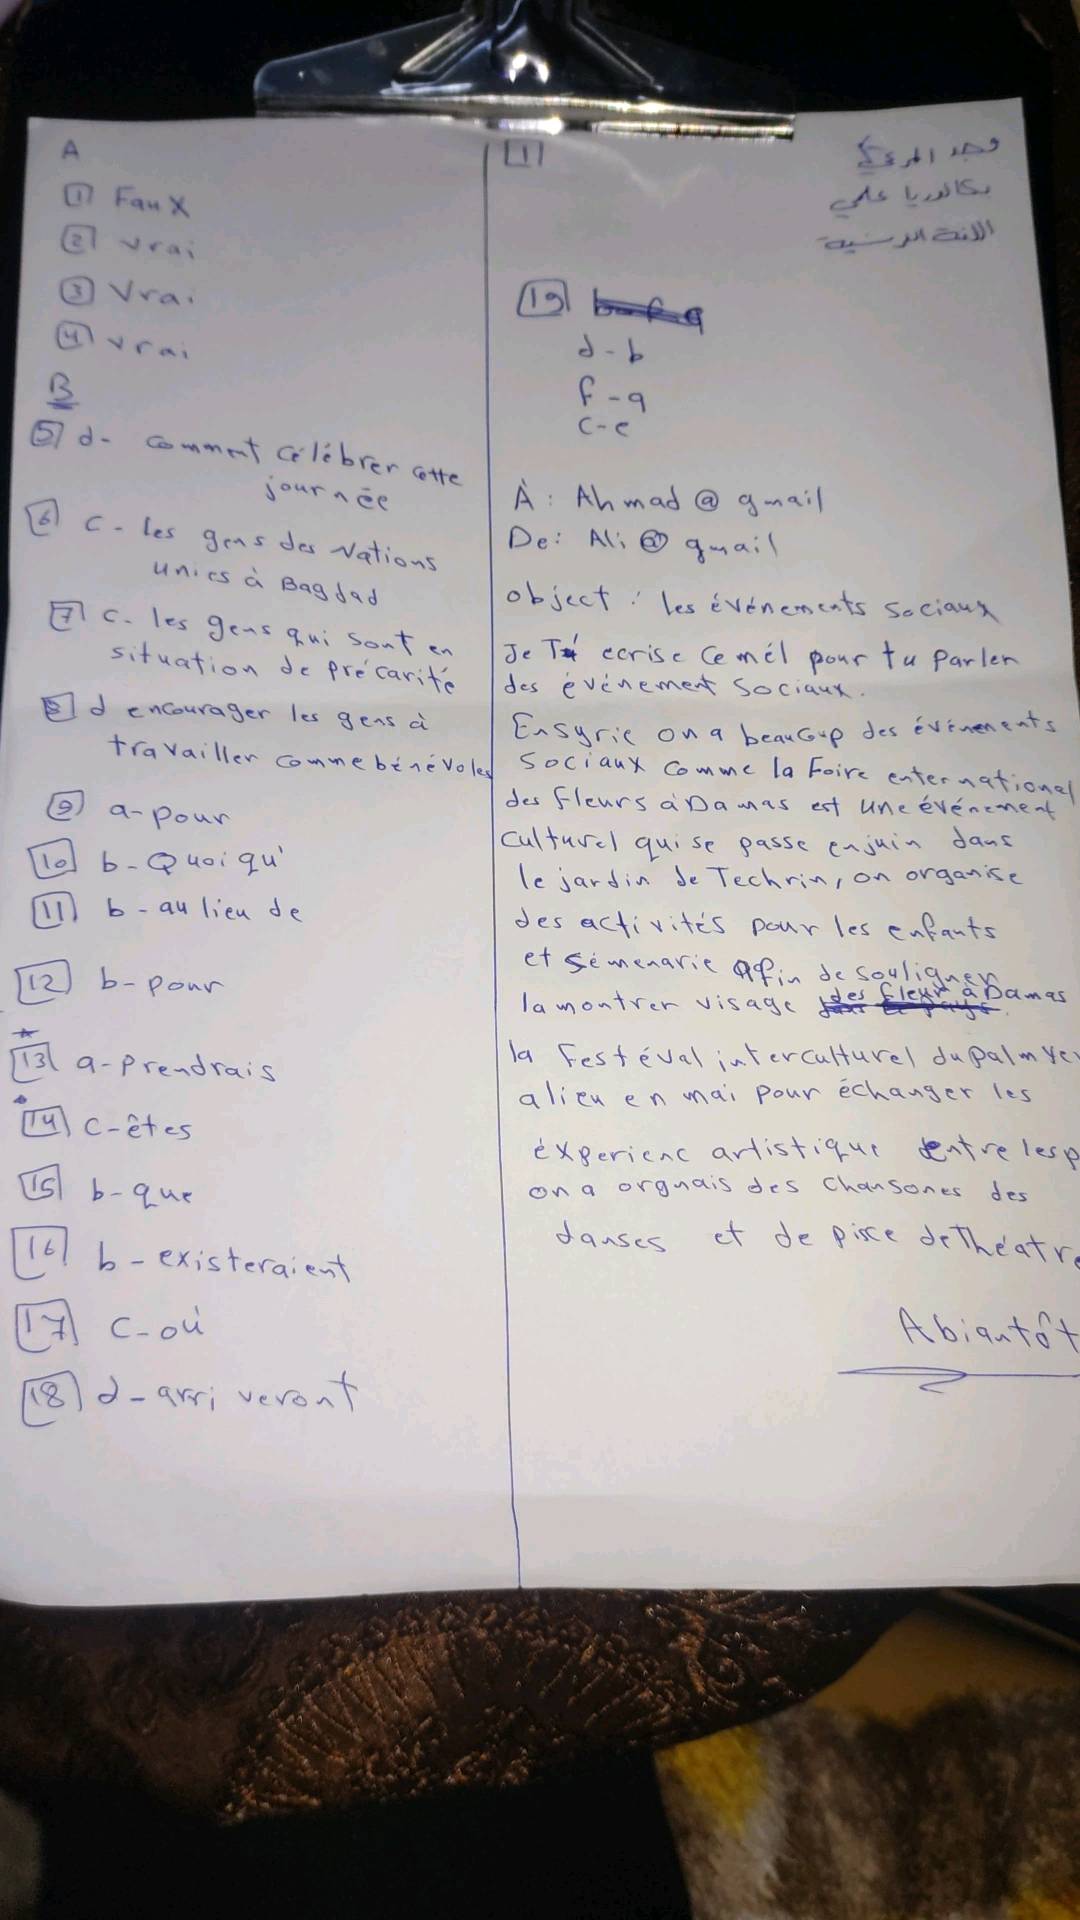 A
1 Faux
2 vrai
3 Vrai
4 vrai
B
5 d- comment célébrer cette
journée
6 c- les gens des Nations
unies à Bagdad
7 c- les gens qui sont en
situation de précarité
8 d encourager les gens à
travailler comme bénévoles
9 a-pour
10 b-Quoiqu'
11 b-au lieu de
12 b-pour
13 a-prendrais
14 c-êtes
15 b-que
16 b-existeraient
17 c-où
18 d-arriveront
1
وجد
بكالوريا علمي
19
d-b
f-a
c-e
À: Ahmad@gmail
De: Ali@gmail
object: les événements sociaux
Je ecrise ce mél pour tu parler
des événement sociaux.
En syrie on a beaucoup des événements
sociaux comme la Foire enternational
des fleurs à Damas est une événement
culturel qui se passe en juin dans
le jardin de Techrin, on organise
des activités pour les enfants
et sémenarie afin de souligner
la montrer visage des fleur à Damas
la Festéval interculturel du palmyer
a lieu en mai pour échanger les
éxperienc artistique entre les p
on a orgnais des chansones des
danses et de pisce de Théatre
Abiantôt